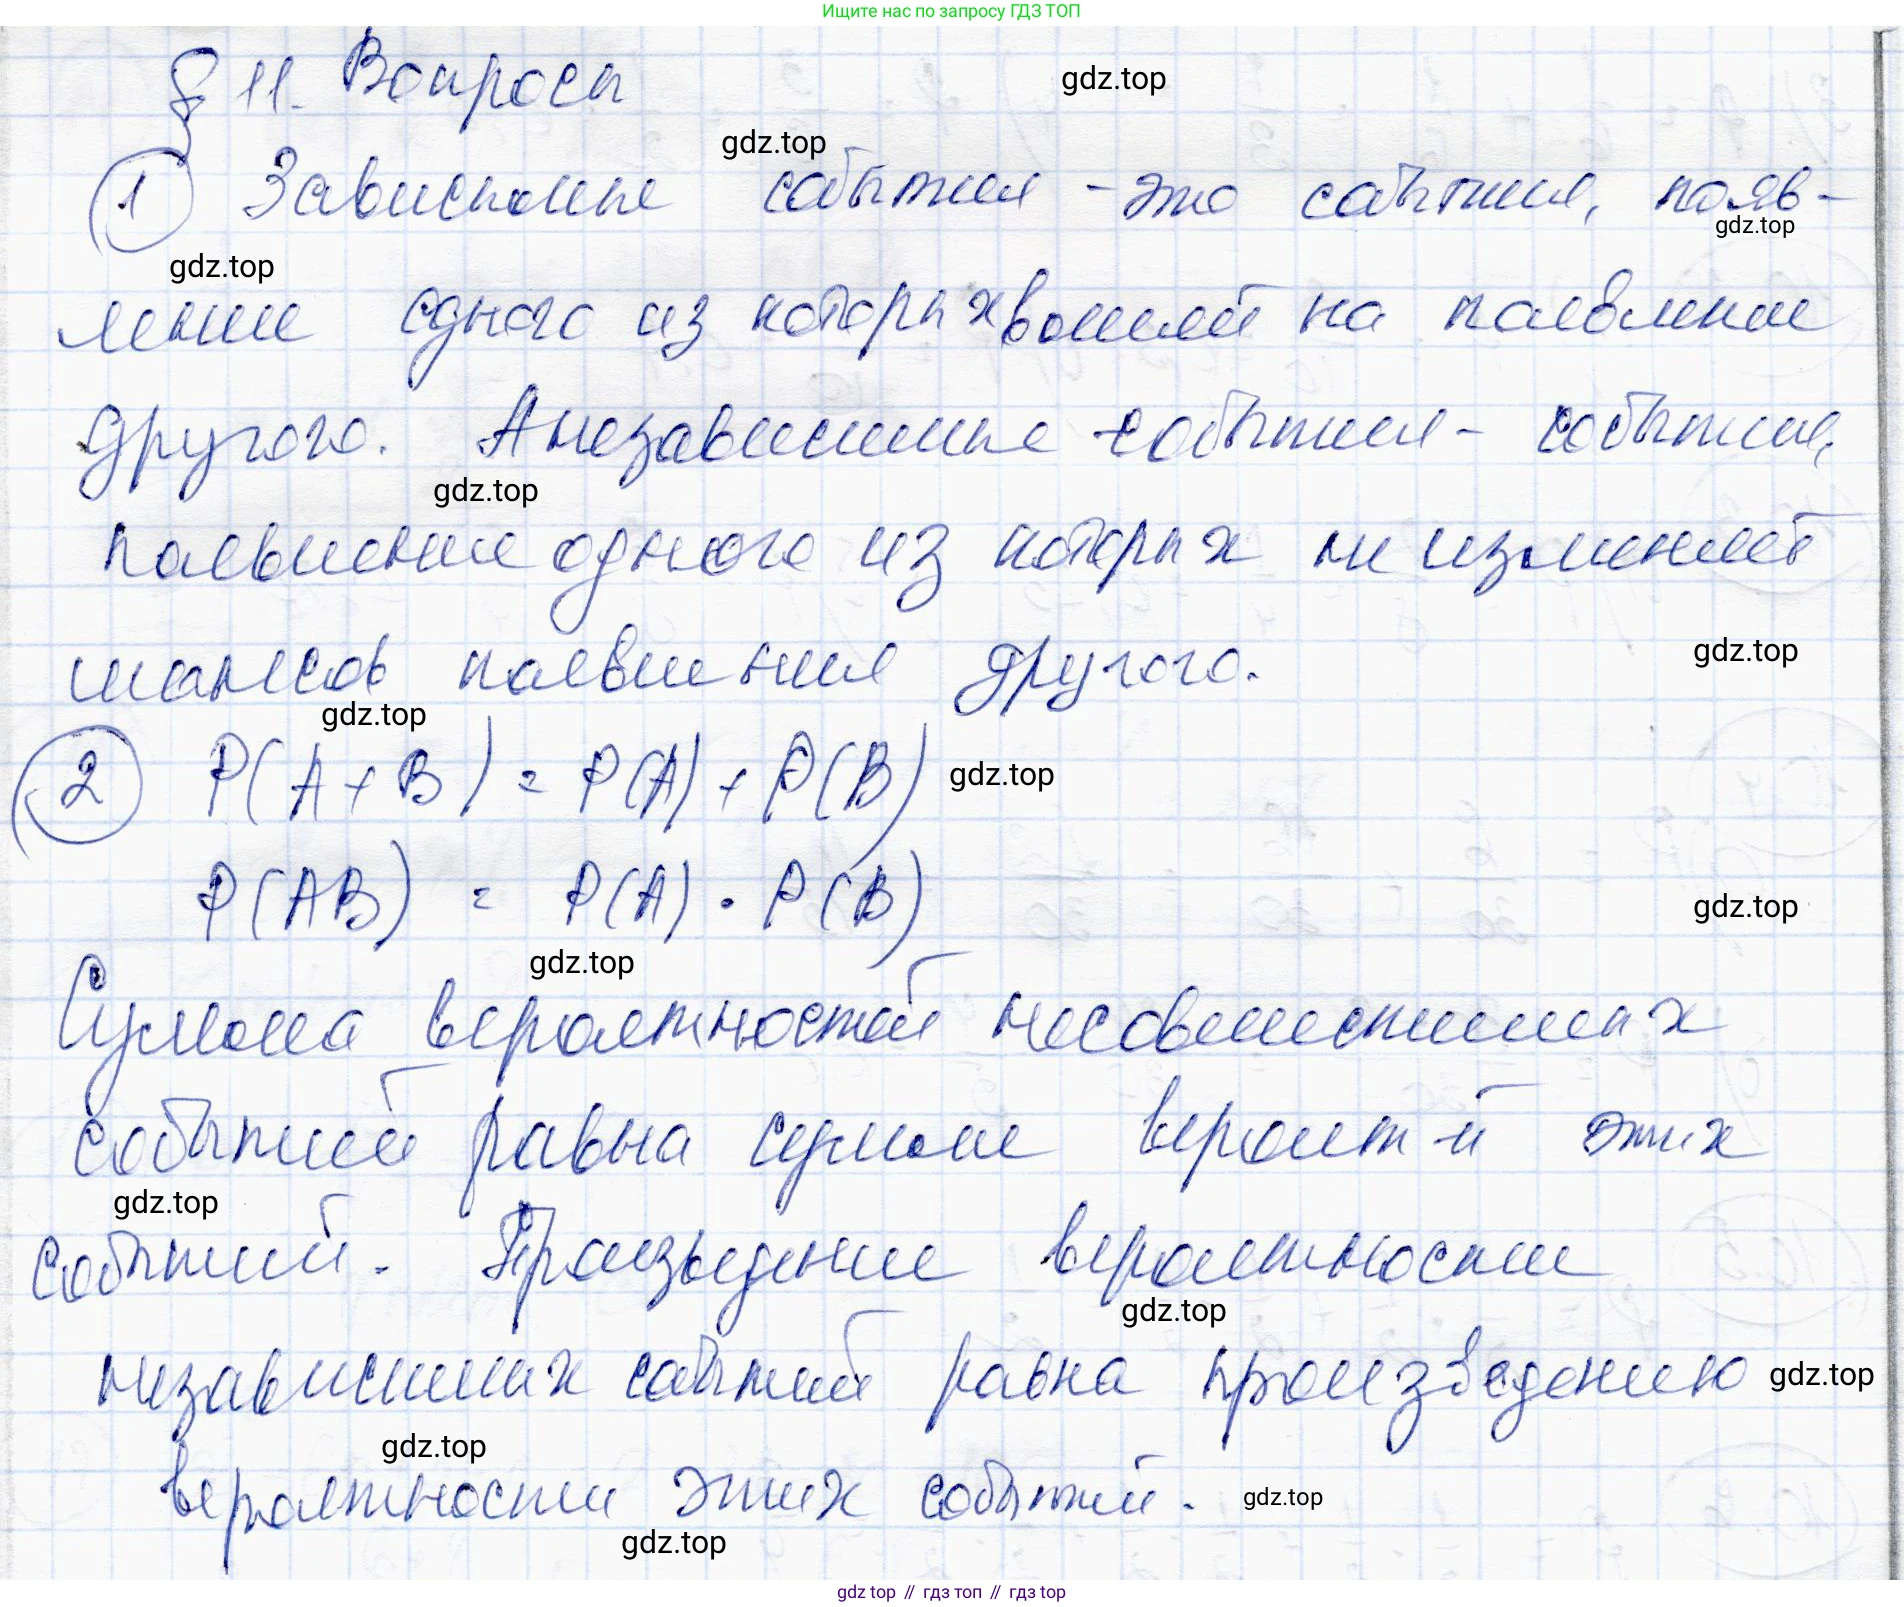 Ищите нас по запросу ГДЗ ТОП
§ 11. Вопросы
gdz.top
gdz.top
1 Зависимые события - это события, появ-
gdz.top
gdz.top
ление одного из которых влияет на появление
другого. А независимые события - события,
gdz.top
появление одного из которых не изменяет
шансов появления другого.
gdz.top
gdz.top
2 P(A + B) = P(A) + P(B)
gdz.top
P(AB) = P(A) · P(B)
gdz.top
gdz.top
Сумма вероятностей несовместимых
событий равна сумме вероят-й этих
gdz.top
событий. Произведение вероятности
gdz.top
независимых событий равна произведению
gdz.top
gdz.top
вероятности этих событий.
gdz.top
gdz.top
gdz top // гдз топ // гдз top